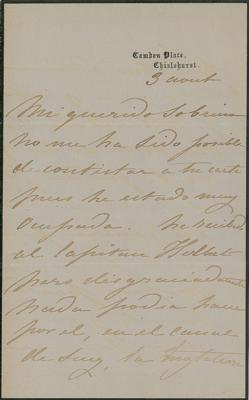 Camden Place,
Chislehurst.
3 aout
Mi querido Sobrino
no me ha sido posible
de contistar a tu carta
pues he estado muy
Ocupada. he
al Capitan
pero disgraciadamente
nada podia hacer
por el, en el canal
de Suez, la